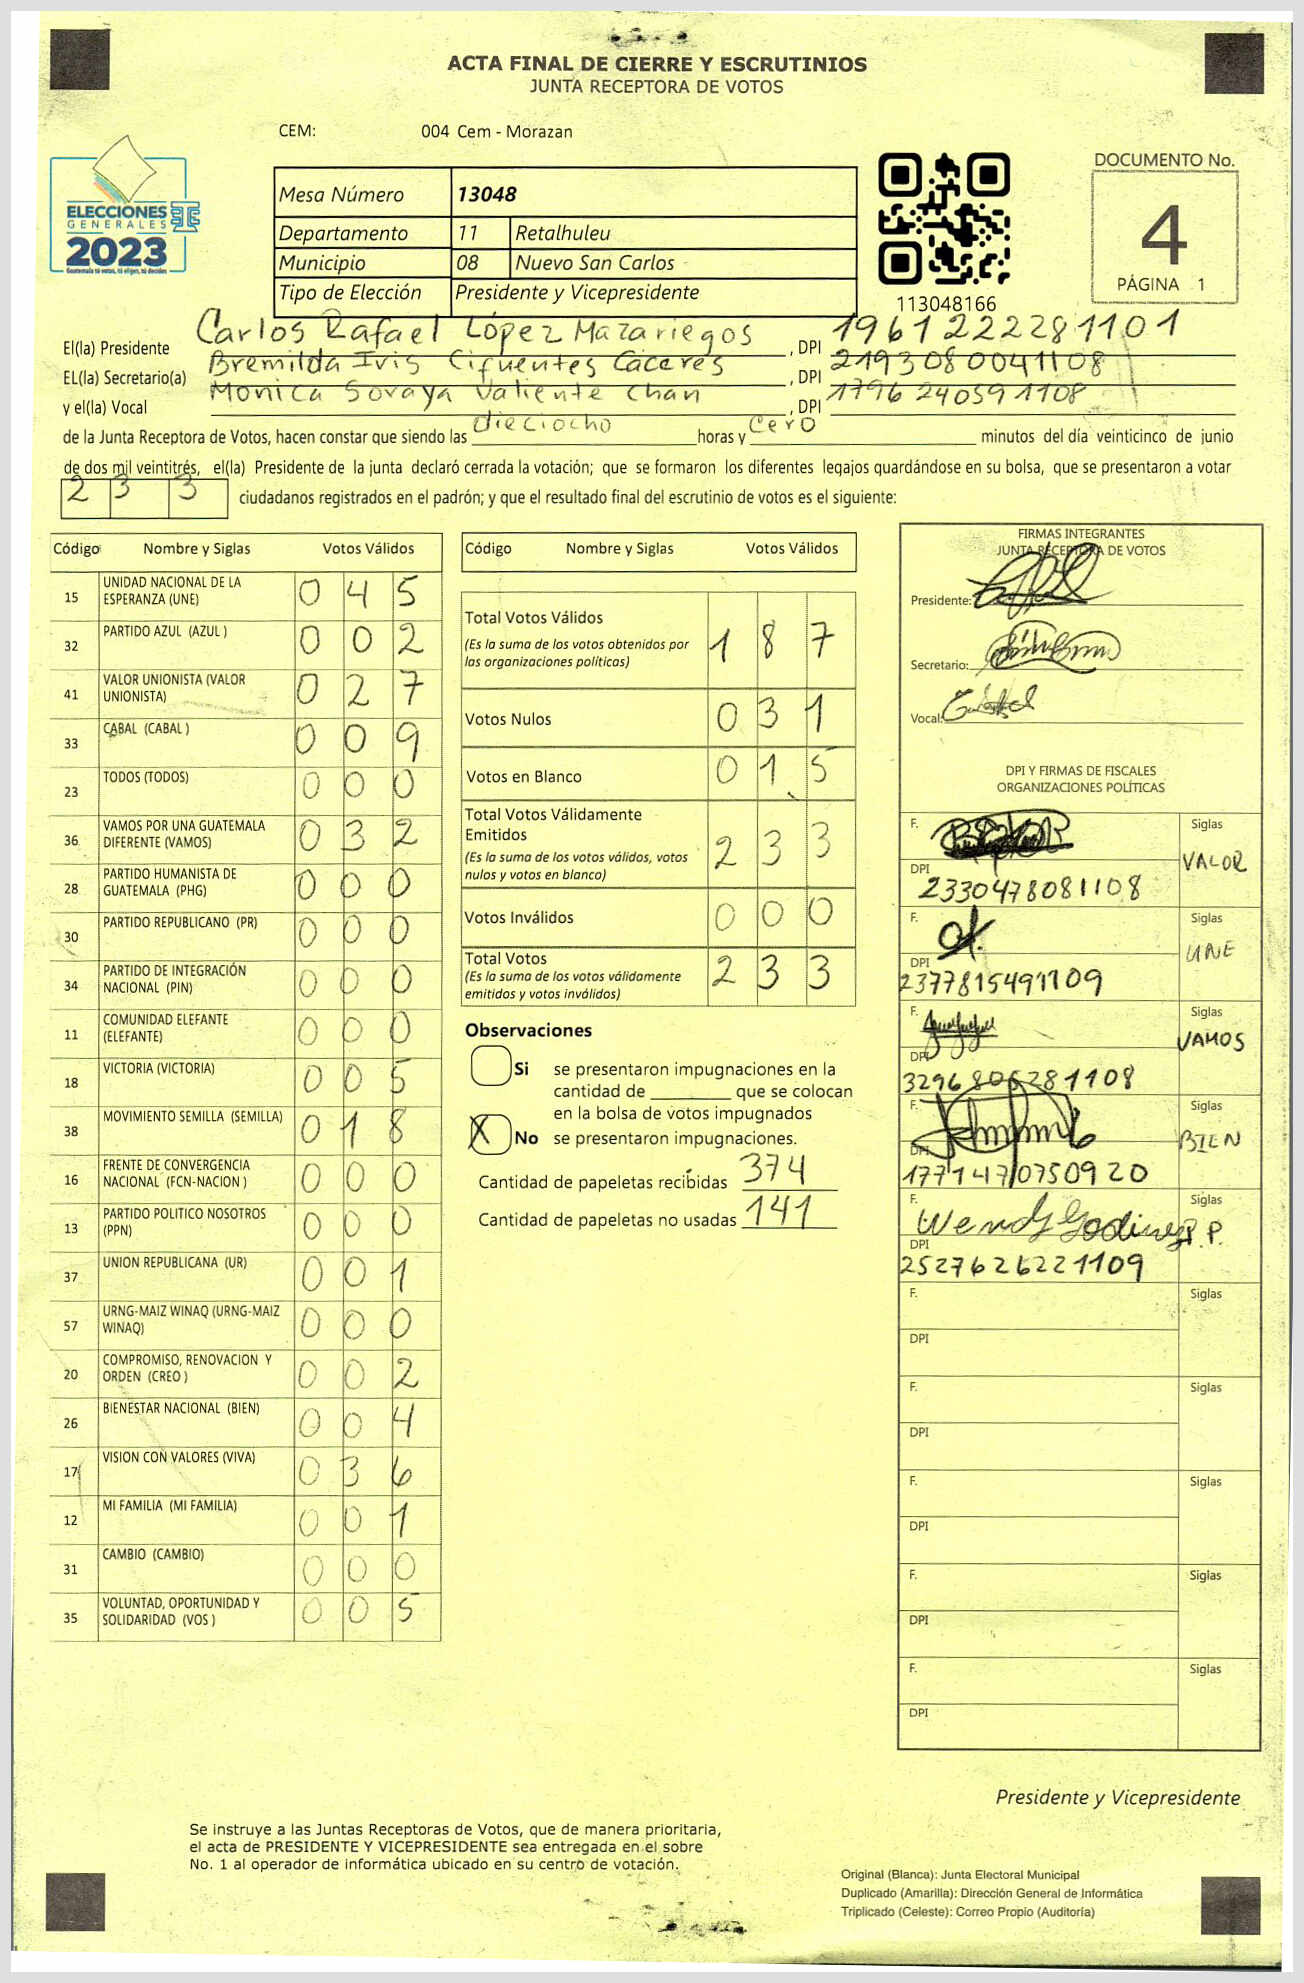 ACTA FINAL DE CIERRE Y ESCRUTINIOS
JUNTA RECEPTORA DE VOTOS
CEM: 004 Cem - Morazan
ELECCIONES
GENERALES
2023
Guatemala tú votas, tú eliges, tú decides
Mesa Número 13048
Departamento 11 Retalhuleu
Municipio 08 Nuevo San Carlos
Tipo de Elección Presidente y Vicepresidente
113048166
DOCUMENTO No.
4
PÁGINA 1
El(la) Presidente Carlos Rafael López Mazariegos , DPI 1961222281101
EL(la) Secretario(a) Bremilda Ivis Cifuentes Cáceres , DPI 2193080041108
y el(la) Vocal Monica Soraya Valiente Chan , DPI 1796240591108
de la Junta Receptora de Votos, hacen constar que siendo las dieciocho horas y cero minutos del día veinticinco de junio
de dos mil veintitrés, el(la) Presidente de la junta declaró cerrada la votación; que se formaron los diferentes legajos quardándose en su bolsa, que se presentaron a votar
2 3 3 ciudadanos registrados en el padrón; y que el resultado final del escrutinio de votos es el siguiente:
Código Nombre y Siglas Votos Válidos
15 UNIDAD NACIONAL DE LA ESPERANZA (UNE) 0 4 5
32 PARTIDO AZUL (AZUL ) 0 0 2
41 VALOR UNIONISTA (VALOR UNIONISTA) 0 2 7
33 CABAL (CABAL ) 0 0 9
23 TODOS (TODOS) 0 0 0
36 VAMOS POR UNA GUATEMALA DIFERENTE (VAMOS) 0 3 2
28 PARTIDO HUMANISTA DE GUATEMALA (PHG) 0 0 0
30 PARTIDO REPUBLICANO (PR) 0 0 0
34 PARTIDO DE INTEGRACIÓN NACIONAL (PIN) 0 0 0
11 COMUNIDAD ELEFANTE (ELEFANTE) 0 0 0
18 VICTORIA (VICTORIA) 0 0 5
38 MOVIMIENTO SEMILLA (SEMILLA) 0 1 8
16 FRENTE DE CONVERGENCIA NACIONAL (FCN-NACION ) 0 0 0
13 PARTIDO POLITICO NOSOTROS (PPN) 0 0 0
37 UNION REPUBLICANA (UR) 0 0 1
57 URNG-MAIZ WINAQ (URNG-MAIZ WINAQ) 0 0 0
20 COMPROMISO, RENOVACION Y ORDEN (CREO ) 0 0 2
26 BIENESTAR NACIONAL (BIEN) 0 0 4
17 VISION CON VALORES (VIVA) 0 3 6
12 MI FAMILIA (MI FAMILIA) 0 0 1
31 CAMBIO (CAMBIO) 0 0 0
35 VOLUNTAD, OPORTUNIDAD Y SOLIDARIDAD (VOS ) 0 0 5
Código Nombre y Siglas Votos Válidos
Total Votos Válidos 1 8 7
(Es la suma de los votos obtenidos por
las organizaciones políticas)
Votos Nulos 0 3 1
Votos en Blanco 0 1 5
Total Votos Válidamente
Emitidos 2 3 3
(Es la suma de los votos válidos, votos
nulos y votos en blanco)
Votos Inválidos 0 0 0
Total Votos 2 3 3
(Es la suma de los votos válidamente
emitidos y votos inválidos)
Observaciones
Si se presentaron impugnaciones en la
cantidad de ________ que se colocan
en la bolsa de votos impugnados
X No se presentaron impugnaciones.
Cantidad de papeletas recibidas 374
Cantidad de papeletas no usadas 141
FIRMAS INTEGRANTES
JUNTA RECEPTORA DE VOTOS
Presidente:
Secretario:
Vocal:
DPI Y FIRMAS DE FISCALES
ORGANIZACIONES POLÍTICAS
F. Siglas
VALOR
DPI
2330478081108
F. Siglas
UNE
DPI
2377815491109
F. Siglas
VAMOS
DPI
3296806281108
F. Siglas
BIEN
DPI
1771470750920
F. Wendy Godinez Siglas
P.P.
DPI
2527626221109
F. Siglas
DPI
F. Siglas
DPI
F. Siglas
DPI
F. Siglas
DPI
F. Siglas
DPI
Presidente y Vicepresidente
Se instruye a las Juntas Receptoras de Votos, que de manera prioritaria,
el acta de PRESIDENTE Y VICEPRESIDENTE sea entregada en el sobre
No. 1 al operador de informática ubicado en su centro de votación.
Original (Blanca): Junta Electoral Municipal
Duplicado (Amarilla): Dirección General de Informática
Triplicado (Celeste): Correo Propio (Auditoría)